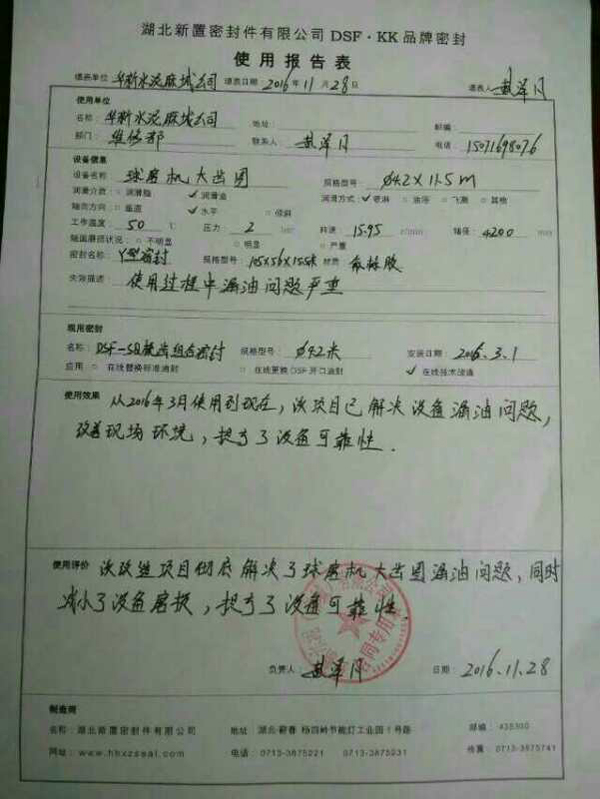 湖北新置密封件有限公司 DSF·KK 品牌密封
使用报告表
填表单位 华新水泥麻城公司 填表日期 2016年11月28日 填表人
使用单位
名称：华新水泥麻城公司 地址： 邮编：
部门：维修部 联系人： 电话
设备信息
设备名称 球磨机大齿圈 规格型号： Ø4.2×11.5m
润滑介质：○润滑脂 ✓润滑油 润滑方式：✓喷淋 ○油浴 ○飞溅 ○其他
轴向方向：○垂直 ✓水平 ○倾斜
工作温度： 50 ℃ 压力： 2 转速： 15.95 r/min 轴径： 4200 mm
轴面磨损状况：○不明显 ○明显 ○严重
密封名称： Y型密封 规格型号： 材质
失效描述： 使用过程中漏油问题严重
现用密封
名称： 规格型号： Ø4.2米 安装日期： 2016.3.1
应用：○在线替换标准油封 ○在线更换DSF开口油封 ✓在线技术改造
使用效果 从2016年3月使用到现在，该项目已解决设备漏油问题，
改善现场环境，提高了设备可靠性.
使用评价 该改造项目彻底解决了球磨机大齿圈漏油问题，同时
减小了设备磨损，提高了设备可靠性.
负责人： 日期： 2016.11.28
制造商
名称：湖北新置密封件有限公司 地址：湖北·蕲春 杨四岭节能灯工业园1号路 邮编：435300
网址：www.hbxzseal.com 电话：0713-3875221 0713-3875231 传真：0713-3875741